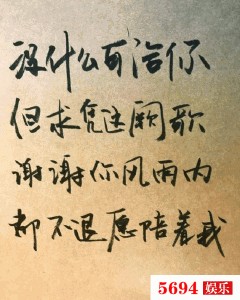 没什么可给你
但求凭这阙歌
谢谢你风雨内
都不退愿陪着我
5694 娱乐